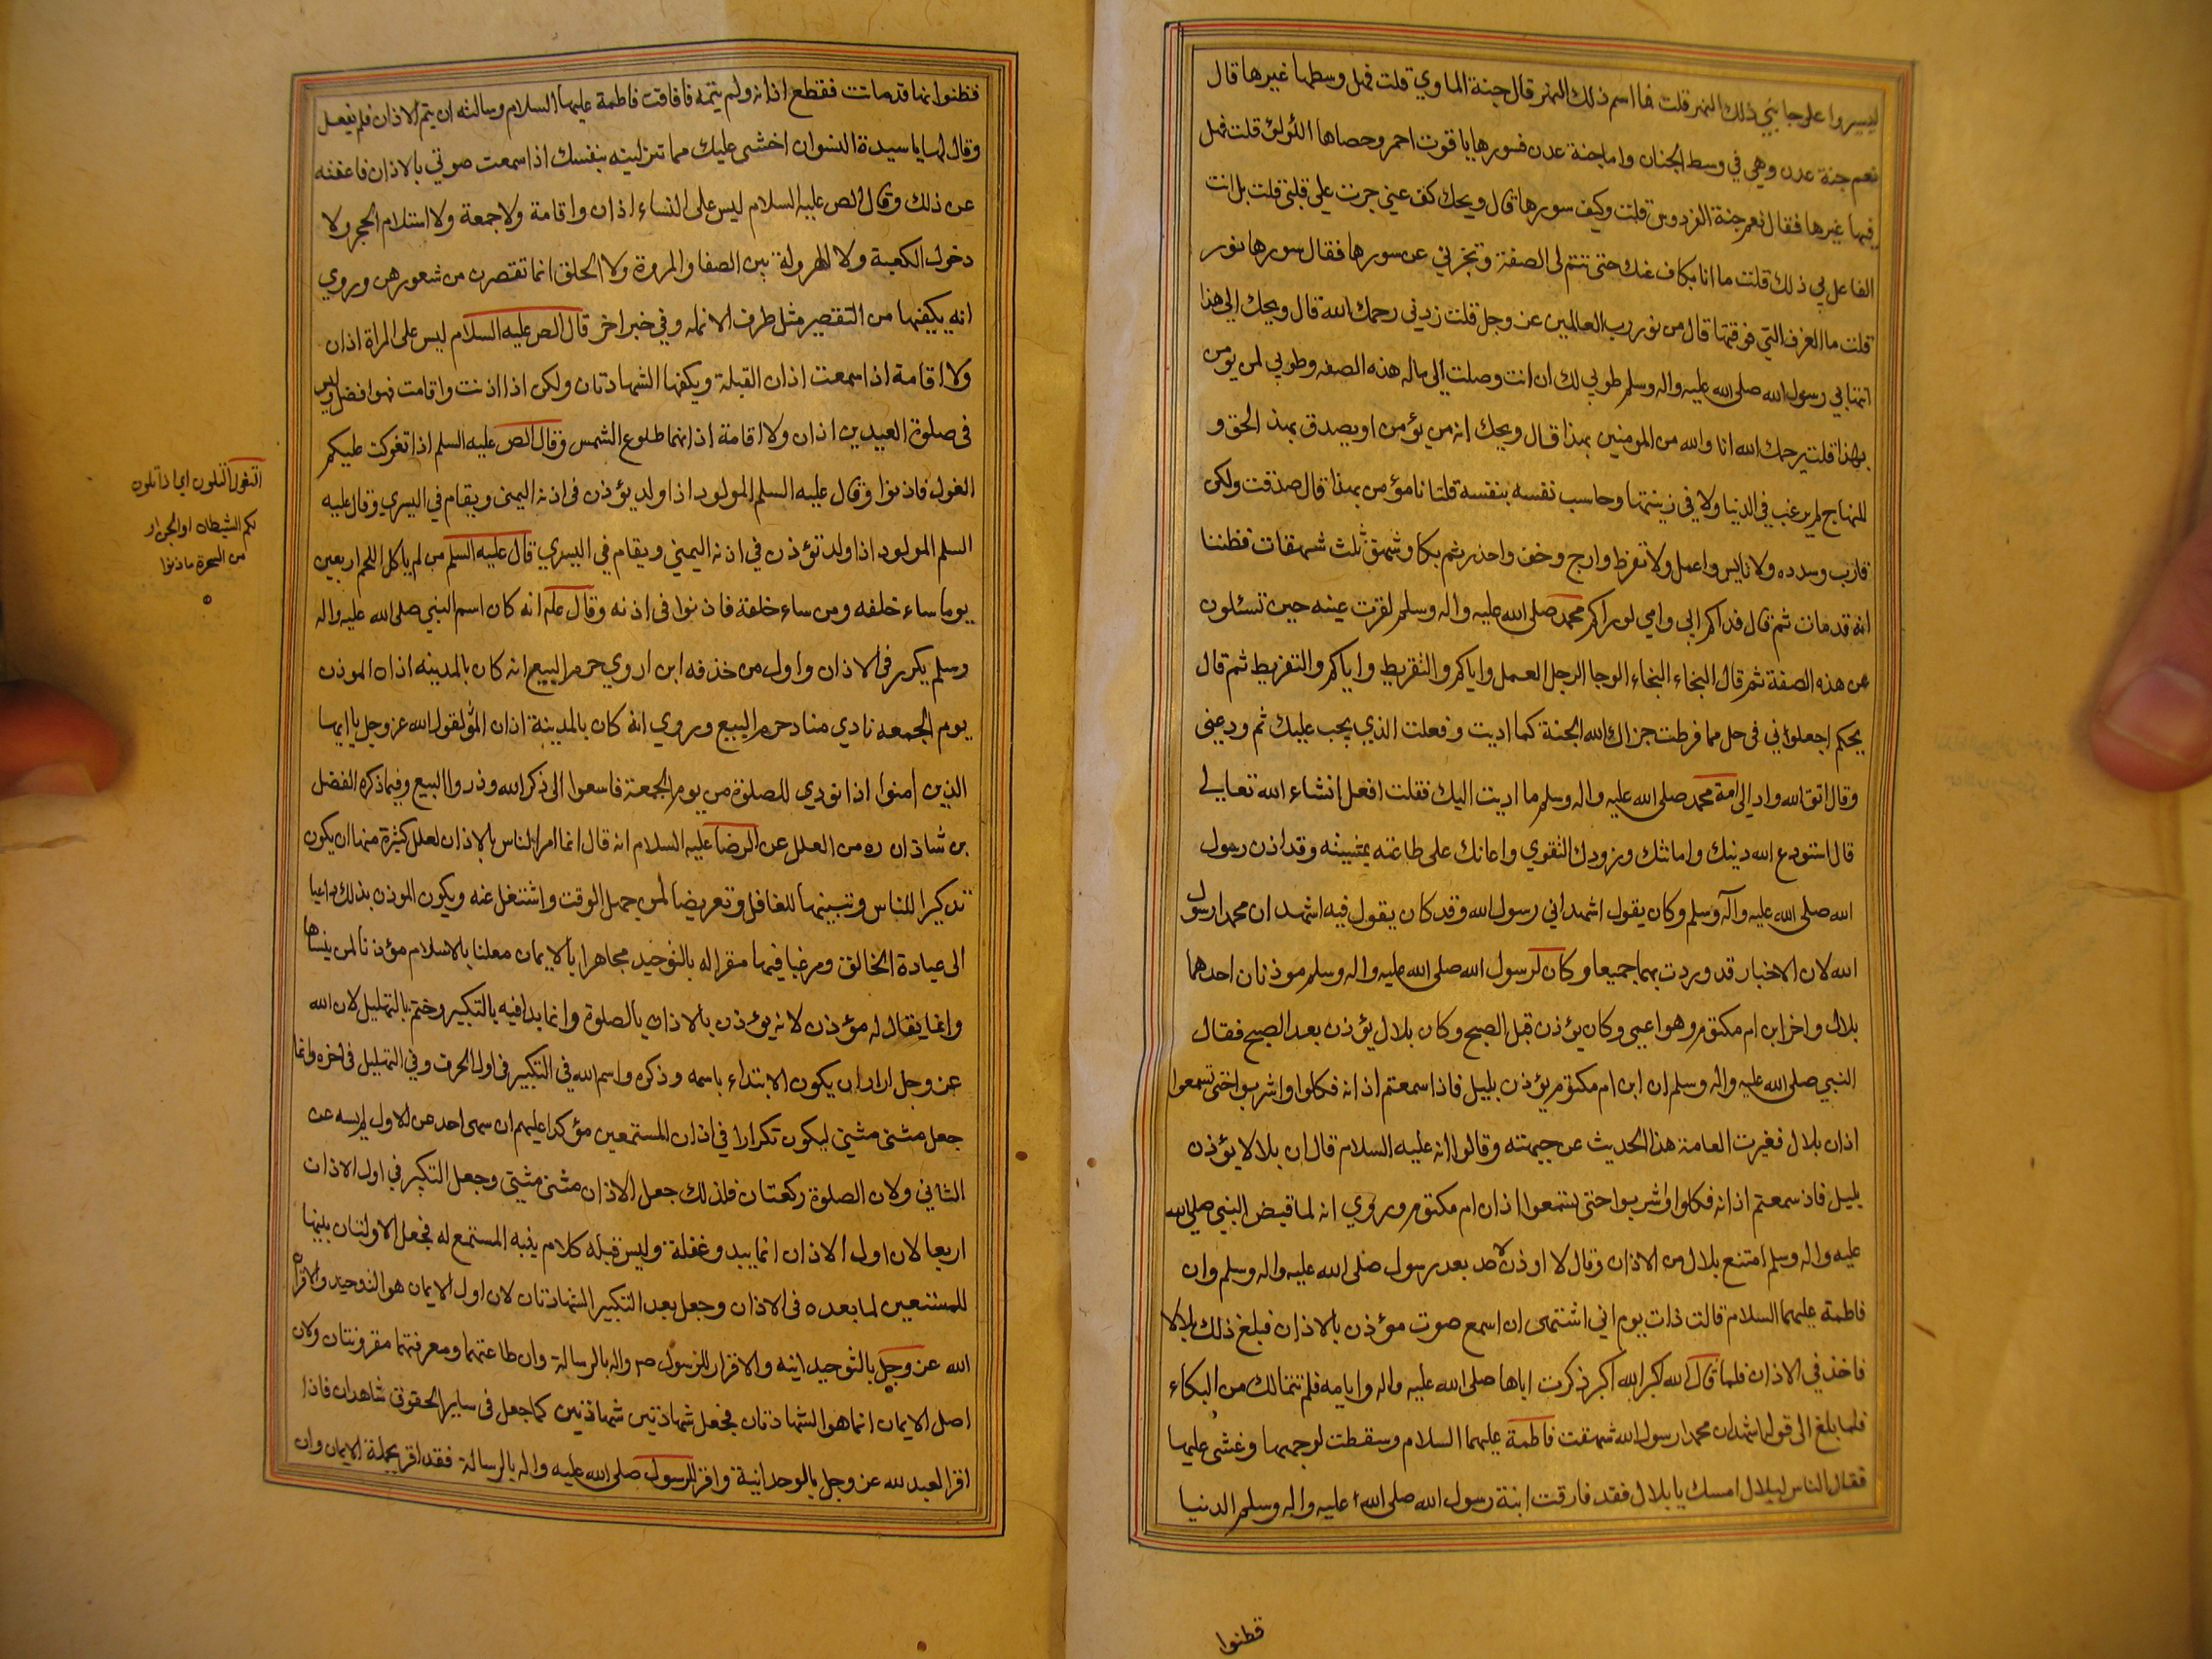 ليسيروا على جانبي ذلك النهر قلت فما اسم ذلك النهر قال جنة الماوي قلت فهل وسطها غيرها قال
نعم جنة عدن وهي في وسط الجنان واما جنة عدن فسورها ياقوت احمر وحصاها اللؤلؤ قلت فهل
فيها غيرها فقال نعم جنة الفردوس قلت وكيف سورها قال ويحك كف عني جرت علي قلبي قلت بل انت
الفاعل بي ذلك قلت ما انا بكاف عنك حتى تتم لى الصفة وتخبرني عن سورها فقال سورها نور
قلت ما الغرف التي هو فيها قال من نور رب العالمين عز وجل قلت زدني رحمك الله قال ويحك الي هذا
انتها بي رسول الله صلى الله عليه واله وسلم طوبي لك ان انت وصلت الي ماله هذه الصفه وطوبي لمن يومن
بهذا قلت يرحمك الله انا والله من المومنين بهذا قال ويحك انه من يؤمن او يصدق بهذ الحق و
المنهاج لم يرغب في الدنيا ولا في زينتها وحاسب نفسه بنفسه قلت انا مؤمن بهذا قال صدقت ولكن
قارب وسدده ولا تايس واعمل ولا تفرط وارج وخف واحذر ثم بكا وشهق ثلث شهقات فظننا
انه قد مات ثم قال فداكم ابي وامي لو راكم محمد صلى الله عليه واله وسلم لقرت عينه حين تسئلون
عن هذه الصفة ثم قال النجاء النجاء الوحا الرجل العمل واياكم والتفريط واياكم والتفريط ثم قال
يحكم اجعلوني في حل مما فرطت جزاك الله الجنة كما اديت وفعلت الذي يجب عليك ثم ودعني
وقال اتق الله واد الى امة محمد صلى الله عليه واله وسلم ما اديت اليك فقلت افعل انشاء الله تعالي
قال استودع الله دينك وامانتك وزودك التقوي واعانك على طاعته بمشيته وقد اذن رسول
الله صلى الله عليه وآله وسلم وكان يقول اشهد اني رسول الله وقد كان يقول فيه اشهد ان محمد ارسول
الله لان الاخبار قد وردت بهما جميعا وكان لرسول الله صلى الله عليه واله وسلم موذنان احدهما
بلال واخر ابن ام مكتوم وهو اعمي وكان يؤذن قبل الصبح وكان بلال يؤذن بعد الصبح فقال
النبي صلى الله عليه واله وسلم ان ابن ام مكتوم يؤذن بليل فاذا سمعتم اذانه فكلوا واشربوا حتى تسمعوا
اذان بلال فغيرت العامة هذا الحديث عن جهته وقالوا انه عليه السلام قال ان بلالا يؤذن
بليل فاذ سمعتم اذانه فكلوا واشربوا حتى تستمعوا اذان ام مكتوم وروي انه لما قبض النبي صلى الله
عليه واله وسلم امتنع بلال من الاذان وقال لا اوذن لاحد بعد رسول صلى الله عليه واله وسلم وان
فاطمة عليهما السلام قالت ذات يوم اني اشتهى ان اسمع صوت مؤذن بالاذان فبلغ ذلك بلالا
فاخذ في الاذان فلما قال الله اكبر الله اكبر ذكرت اباها صلى الله عليه واله وايامه فلم تتمالك من البكاء
فلما بلغ الى قوله اشهد ان محمد ارسول الله شهقت فاطمة عليهما السلام وسقطت لوجهها وغشى عليها
فقال الناس لبلال امسك يا بلال فقد فارقت ابنة رسول الله صلى الله عليه واله وسلم الدنيا
فظنوا
فظنوا انها قد ماتت فقطع اذانه ولم يتمه فافاقت فاطمة عليها السلام وسالته ان يتم الاذان فلم يفعل
وقال لها يا سيدة النسوان اخشى عليك مما تنزلينه بنفسك اذا سمعت صوتي بالاذان فاعفته
عن ذلك وقال الص عليه السلام ليس على النساء اذان واقامة ولا جمعة ولا استلام الحجر ولا
دخول الكعبة ولا الهرولة بين الصفا والمروة ولا الحلق انما تقصرن من شعورهن وروي
انه يكفيها من التقصير مثل طرف الانمله وفي خبر اخر قال الص عليه السلام ليس على المراة اذان
ولا اقامة اذا سمعت اذان القبلة ويكفيها الشهادتان ولكن اذا اذنت واقامت فهو افضل وليس
في صلوة العيدين اذان ولا اقامة اذانهما طلوع الشمس وقال الص عليه السلم اذا تغولت عليكم
الغول فاذنوا وقال عليه السلم المولود اذا ولد يؤذن في اذنه اليمنى ويقام في اليسري وقال عليه
السلم المولود اذا ولد تؤذن في اذنه اليمني ويقام في اليسري قال عليه السلم من لم ياكل اللحم اربعين
يوما ساء خلفه ومن ساء خلقة فاذنوا في اذنه وقال علم انه كان اسم النبي صلى الله عليه واله
وسلم يكرر في الاذان واول من خذفه ابن اروي حرم البيع انه كان بالمدينه اذان الموذن
يوم الجمعه نادي مناد حرم البيع وروي انه كان بالمدينة اذان المؤ لقول الله عز وجل يا ايها
الذين امنوا اذا نودي للصلوة من يوم الجمعة فاسعوا الى ذكر الله وذروا البيع وفيما ذكره الفضل
بن شاذان ره من العلل عن الرضا عليه السلام انه قال انما امر الناس بالاذان لعلل كثيرة منها ان يكون
تذكيرا للناس وتبينها للغافل وتعريضا لمن جهل الوقت واشتغل عنه ويكون الموذن بذلك داعيا
الى عبادة الخالق ومرغبا فيها مقرا له بالتوحيد مجاهرا بالايمان معلنا بالاسلام مؤذنا لمن ينساها
وانما يقال له مؤذن لانه يؤذن بالاذان بالصلوة وانما بدا فيه بالتكبير وختم بالتهليل لان الله
عز وجل اراد ان يكون الابتداء باسمه وذكره واسم الله في التكبير في اول الحرف وفي التهليل في اخره وانما
جعل مثنى مثنى ليكون تكرارا في اذان المستمعين مؤكدا عليهم ان سهى احد عن الاول لم يسه عن
الثاني ولان الصلوة ركعتان فلذلك جعل الاذان مثنى مثنى وجعل التكبير في اول الاذان
اربعا لان اول الاذان انما يبدو غفلة وليس قبله كلام ينبه المستمع له فجعل الاولتان بينها
للمستمعين لما بعده في الاذان وجعل بعد التكبير الشهادتان لان اول الايمان هو التوحيد والاقرار
الله عز وجل بالتوحيد انيه والاقرار للرسول ص واله بالرسالة وان طاعتهما ومعرفتهما مقرونتان ولان
اصل الايمان انما هو الشهادتان فجعل شهادتين شهادتين كما جعل في ساير الحقوق شاهدان فاذا
اقر العبد لله عز وجل بالوحدانية واقر للرسول صلى الله عليه واله بالرسالة فقد اقر بجملة الايمان وان
التغول التلون اي اذا تلون
لكم الشيطان او الجن او
من السحرة ماذنوا